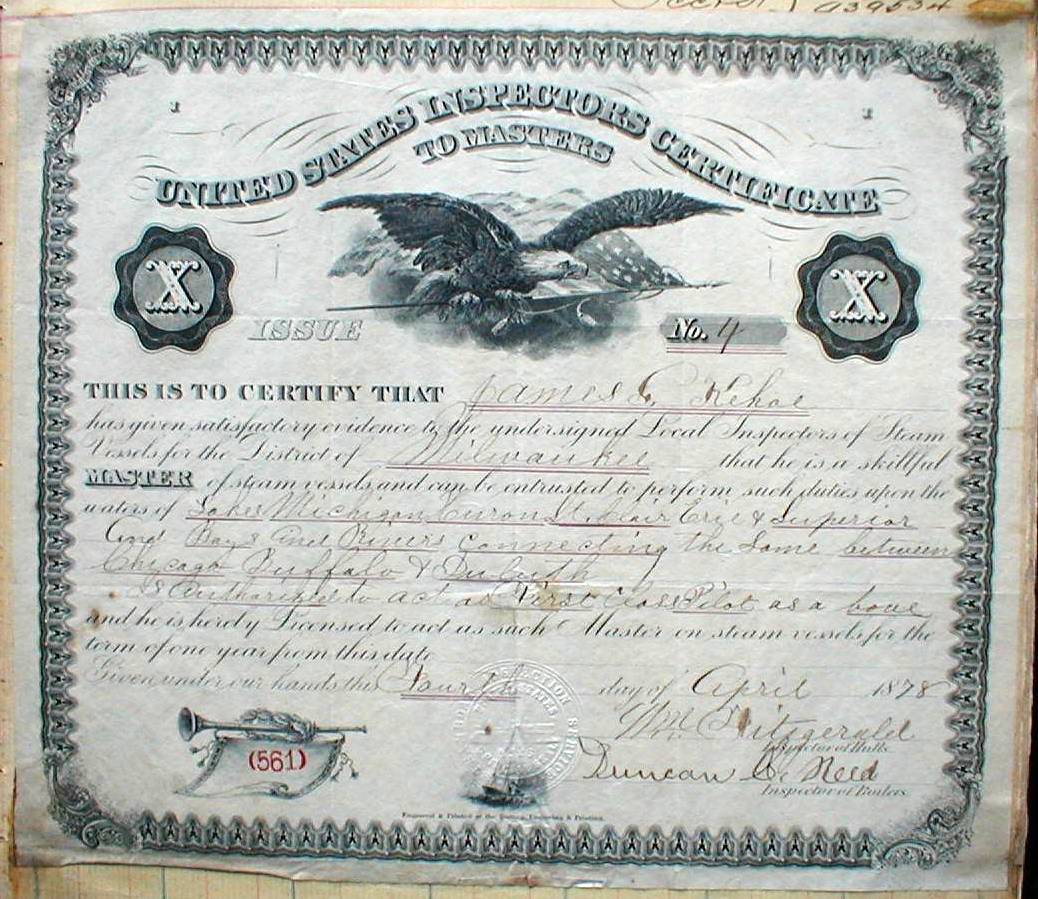 939534
1 1
UNITED STATES INSPECTORS CERTIFICATE
TO MASTERS
X X
ISSUE No. 4
THIS IS TO CERTIFY THAT James Kehoe
has given satisfactory evidence to the undersigned Local Inspectors of Steam
Vessels for the District of Milwaukee that he is a skillful
MASTER of steam vessels and can be entrusted to perform such duties upon the
waters of Lakes Michigan Huron St. Clair Erie & Superior
And Bays and Rivers connecting the Same between
Chicago Buffalo & Duluth
Is Authorized to act as First Class Pilot as a bove
and he is hereby Licensed to act as such Master on steam vessels for the
term of one year from this date
Given under our hands this Fourth day of April 1878
Wm Fitzgerald
Inspector of Hulls.
(561)
Duncan C. Reed
Inspector of Boilers.
Engraved & Printed at the Bureau, Engraving & Printing.